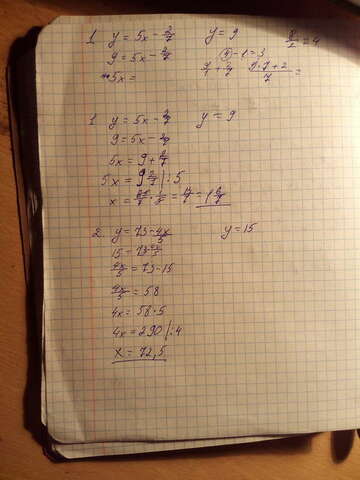 1 y = 5x - 2/7 y = 9 8/2 = 4
9 = 5x - 2/7 4) - 1 = 3
5x = 9/1 + 2/7 9·7+2/7 =
1 y = 5x - 2/7 y = 9
9 = 5x - 2/7
5x = 9 + 2/7
5x = 9 2/7 | : 5
x = 65/7 · 1/5 = 13/7 = 1 6/7
2 y = 73 - 4x/5 y = 15
15 = 73 4x/5
4x/5 = 73 - 15
4x/5 = 58
4x = 58 · 5
4x = 290 | : 4
x = 72,5